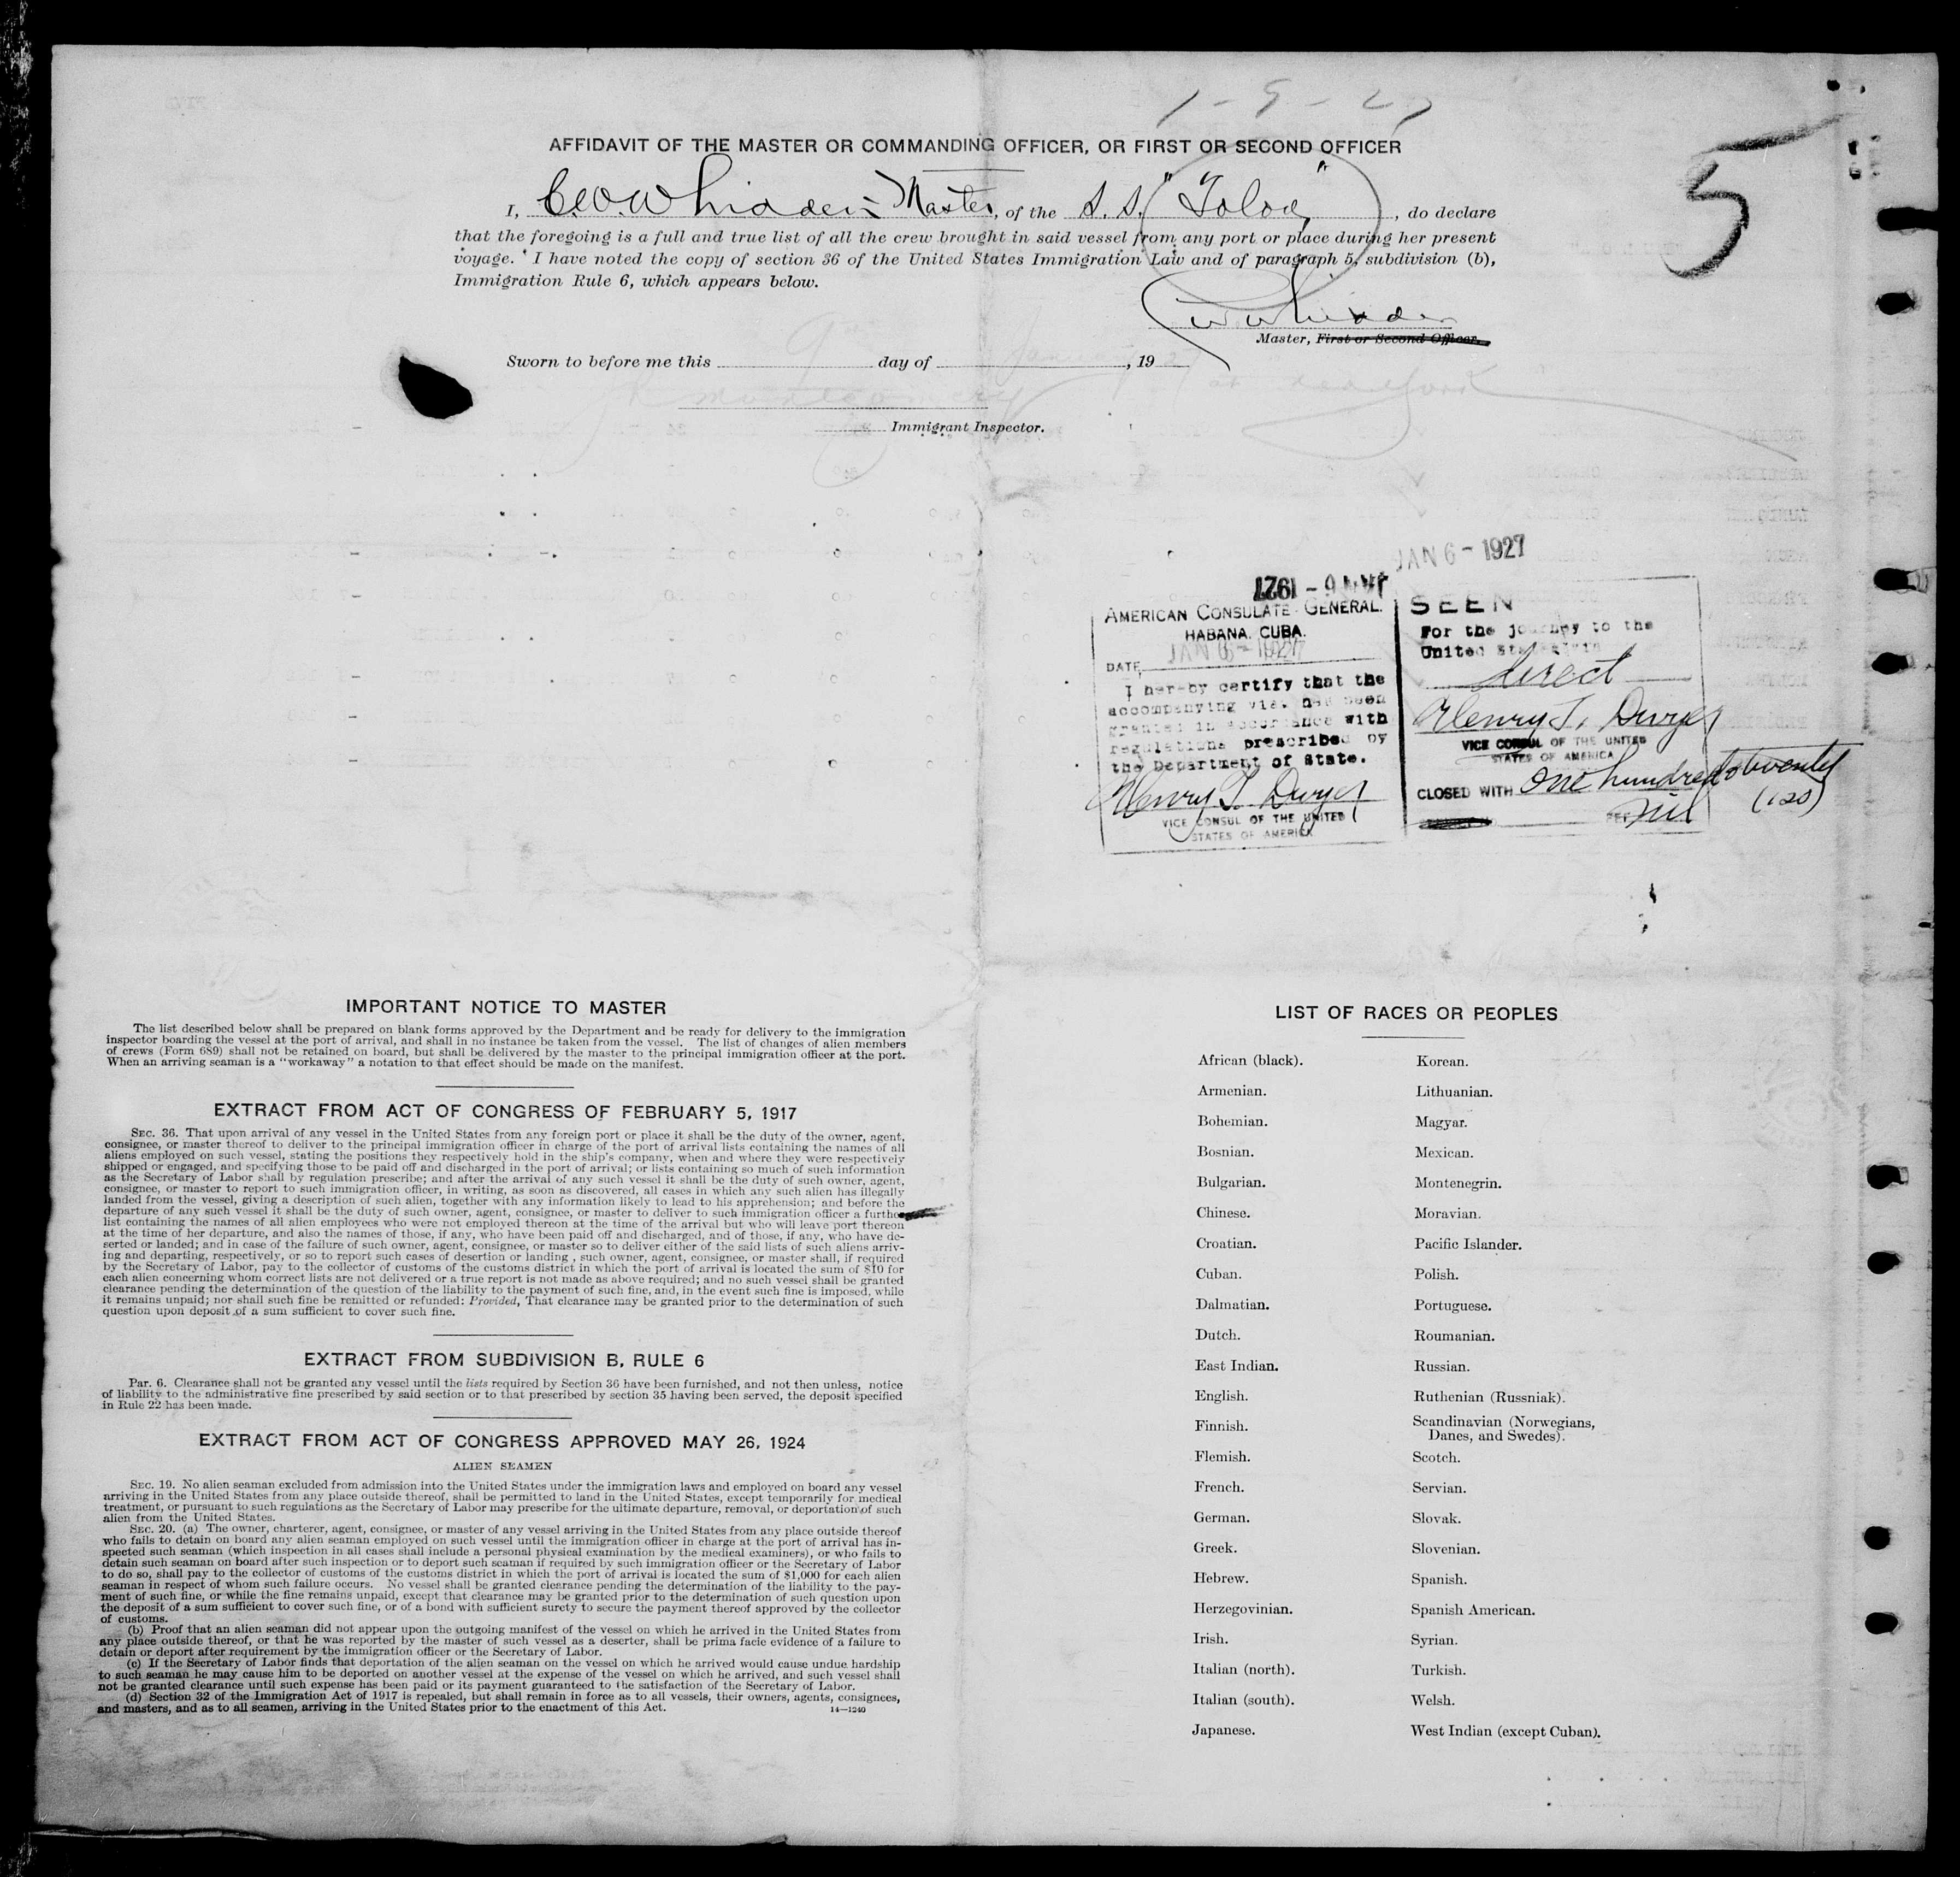 1-9-27
5
AFFIDAVIT OF THE MASTER OR COMMANDING OFFICER, OR FIRST OR SECOND OFFICER
I, C.W. Whidden Master, of the S.S. "Toloa", do declare
that the foregoing is a full and true list of all the crew brought in said vessel from any port or place during her present
voyage. I have noted the copy of section 36 of the United States Immigration Law and of paragraph 5, subdivision (b),
Immigration Rule 6, which appears below.
Master, First or Second Officer.
Sworn to before me this 9 day of January, 19
Immigrant Inspector.
JAN 6 - 1927
JAN 6 - 1927
AMERICAN CONSULATE GENERAL.
HABANA. CUBA.
DATE JAN 6 - 1927
I hereby certify that the
accompanying visa has been
granted in accordance with
regulations prescribed by
the Department of State.
Henry T. Dwyer
VICE CONSUL OF THE UNITED
STATES OF AMERICA
SEEN
For the journey to the
United States
direct
Henry T. Dwyer
VICE CONSUL OF THE UNITED
STATES OF AMERICA
CLOSED WITH One hundred & twenty
(120)
FEE nil
IMPORTANT NOTICE TO MASTER
The list described below shall be prepared on blank forms approved by the Department and be ready for delivery to the immigration
inspector boarding the vessel at the port of arrival, and shall in no instance be taken from the vessel. The list of changes of alien members
of crews (Form 689) shall not be retained on board, but shall be delivered by the master to the principal immigration officer at the port.
When an arriving seaman is a "workaway" a notation to that effect should be made on the manifest.
EXTRACT FROM ACT OF CONGRESS OF FEBRUARY 5, 1917
SEC. 36. That upon arrival of any vessel in the United States from any foreign port or place it shall be the duty of the owner, agent,
consignee, or master thereof to deliver to the principal immigration officer in charge of the port of arrival lists containing the names of all
aliens employed on such vessel, stating the positions they respectively hold in the ship's company, when and where they were respectively
shipped or engaged, and specifying those to be paid off and discharged in the port of arrival; or lists containing so much of such information
as the Secretary of Labor shall by regulation prescribe; and after the arrival of any such vessel it shall be the duty of such owner, agent,
consignee, or master to report to such immigration officer, in writing, as soon as discovered, all cases in which any such alien has illegally
landed from the vessel, giving a description of such alien, together with any information likely to lead to his apprehension; and before the
departure of any such vessel it shall be the duty of such owner, agent, consignee, or master to deliver to such immigration officer a further
list containing the names of all alien employees who were not employed thereon at the time of the arrival but who will leave port thereon
at the time of her departure, and also the names of those, if any, who have been paid off and discharged, and of those, if any, who have de-
serted or landed; and in case of the failure of such owner, agent, consignee, or master so to deliver either of the said lists of such aliens arriv-
ing and departing, respectively, or so to report such cases of desertion or landing, such owner, agent, consignee, or master shall, if required
by the Secretary of Labor, pay to the collector of customs of the customs district in which the port of arrival is located the sum of $10 for
each alien concerning whom correct lists are not delivered or a true report is not made as above required; and no such vessel shall be granted
clearance pending the determination of the question of the liability to the payment of such fine, and, in the event such fine is imposed, while
it remains unpaid; nor shall such fine be remitted or refunded: Provided, That clearance may be granted prior to the determination of such
question upon deposit of a sum sufficient to cover such fine.
EXTRACT FROM SUBDIVISION B, RULE 6
Par. 6. Clearance shall not be granted any vessel until the lists required by Section 36 have been furnished, and not then unless, notice
of liability to the administrative fine prescribed by said section or to that prescribed by section 35 having been served, the deposit specified
in Rule 22 has been made.
EXTRACT FROM ACT OF CONGRESS APPROVED MAY 26, 1924
ALIEN SEAMEN
SEC. 19. No alien seaman excluded from admission into the United States under the immigration laws and employed on board any vessel
arriving in the United States from any place outside thereof, shall be permitted to land in the United States, except temporarily for medical
treatment, or pursuant to such regulations as the Secretary of Labor may prescribe for the ultimate departure, removal, or deportation of such
alien from the United States.
SEC. 20. (a) The owner, charterer, agent, consignee, or master of any vessel arriving in the United States from any place outside thereof
who fails to detain on board any alien seaman employed on such vessel until the immigration officer in charge at the port of arrival has in-
spected such seaman (which inspection in all cases shall include a personal physical examination by the medical examiners), or who fails to
detain such seaman on board after such inspection or to deport such seaman if required by such immigration officer or the Secretary of Labor
to do so, shall pay to the collector of customs of the customs district in which the port of arrival is located the sum of $1,000 for each alien
seaman in respect of whom such failure occurs. No vessel shall be granted clearance pending the determination of the liability to the pay-
ment of such fine, or while the fine remains unpaid, except that clearance may be granted prior to the determination of such question upon
the deposit of a sum sufficient to cover such fine, or of a bond with sufficient surety to secure the payment thereof approved by the collector
of customs.
(b) Proof that an alien seaman did not appear upon the outgoing manifest of the vessel on which he arrived in the United States from
any place outside thereof, or that he was reported by the master of such vessel as a deserter, shall be prima facie evidence of a failure to
detain or deport after requirement by the immigration officer or the Secretary of Labor.
(c) If the Secretary of Labor finds that deportation of the alien seaman on the vessel on which he arrived would cause undue hardship
to such seaman he may cause him to be deported on another vessel at the expense of the vessel on which he arrived, and such vessel shall
not be granted clearance until such expense has been paid or its payment guaranteed to the satisfaction of the Secretary of Labor.
(d) Section 32 of the Immigration Act of 1917 is repealed, but shall remain in force as to all vessels, their owners, agents, consignees,
and masters, and as to all seamen, arriving in the United States prior to the enactment of this Act.
14—1240
LIST OF RACES OR PEOPLES
African (black).
Armenian.
Bohemian.
Bosnian.
Bulgarian.
Chinese.
Croatian.
Cuban.
Dalmatian.
Dutch.
East Indian.
English.
Finnish.
Flemish.
French.
German.
Greek.
Hebrew.
Herzegovinian.
Irish.
Italian (north).
Italian (south).
Japanese.
Korean.
Lithuanian.
Magyar.
Mexican.
Montenegrin.
Moravian.
Pacific Islander.
Polish.
Portuguese.
Roumanian.
Russian.
Ruthenian (Russniak).
Scandinavian (Norwegians,
Danes, and Swedes).
Scotch.
Servian.
Slovak.
Slovenian.
Spanish.
Spanish American.
Syrian.
Turkish.
Welsh.
West Indian (except Cuban).